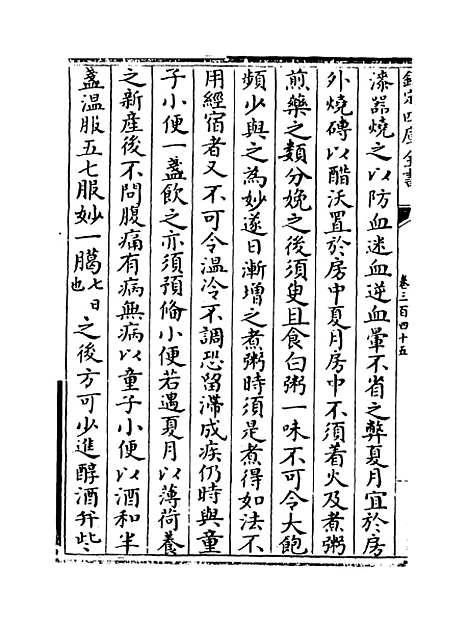 欽定四庫全書
卷三百四十五
漆器燒之以防血迷血逆血暈不省之弊夏月宜於房
外燒磚以醋沃置於房中夏月房中不須着火及煮粥
煎藥之類分娩之後須臾且食白粥一味不可令大飽
頻少與之為妙遂日漸增之煮粥時須是煮得如法不
用經宿者又不可令溫冷不調恐留滯成疾仍時與童
子小便一盞飲之亦須預備小便若遇夏月以薄荷養
之新産後不問腹痛有病無病以童子小便以酒和半
盞温服五七服妙一臈七日也之後方可少進醇酒并些